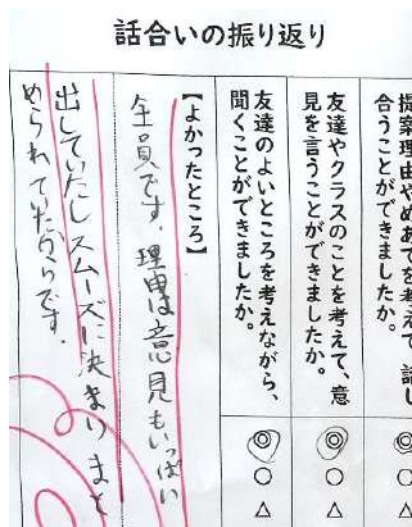 話合いの振り返り
提案理由やめあてを考えて、話し
合うことができましたか。
◎
○
△
友達やクラスのことを考えて、意
見を言うことができましたか。
◎
○
△
友達のよいところを考えながら、
聞くことができましたか。
◎
○
△
【よかったところ】
全員です。理由は意見もいっぱい
出していたしスムーズに決まりまと
められていたからです。